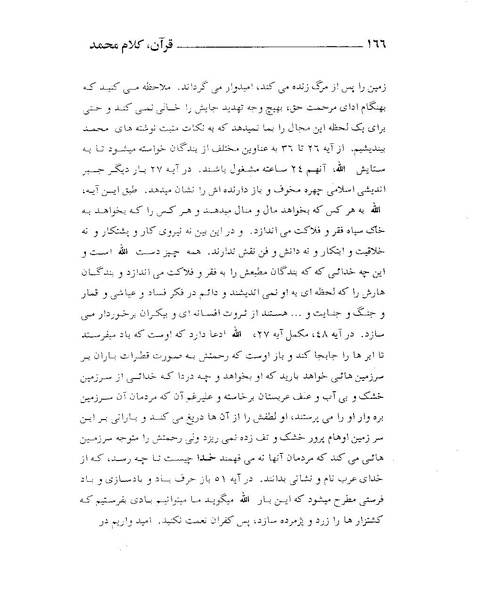 ۱۶۶ قرآن، کلام محمد
زمین را پس از مرگ زنده می کند، امیدوار می گرداند. ملاحظه می کنید که
بهنگام ادای مرحمت حق، بهیچ وجه تهدید جایش را خالی نمی کند و حتی
برای یک لحظه این مجال را بما نمیدهد که به نکات مثبت نوشته های محمد
بیندیشیم. از آیه ۲۶ تا ۳۶ به عناوین مختلف از بندگان خواسته میشود تا به
ستایش الله، آنهم ۲۴ ساعته مشغول باشند. در آیه ۲۷ بار دیگر جبر
اندیشی اسلامی چهره مخوف و باز دارنده اش را نشان میدهد. طبق این آیه،
الله به هر کس که بخواهد مال و منال میدهد و هر کس را که بخواهد به
خاک سیاه فقر و فلاکت می اندازد. و در این بین نه نیروی کار و پشتکار و نه
خلاقیت و ابتکار و نه دانش و فن نقش ندارند. همه چیز دست الله است و
این چه خدائی که که بندگان مطیعش را به فقر و فلاکت می اندازد و بندگان
هارش را که لحظه ای به او نمی اندیشند و دائم در فکر فساد و عیاشی و قمار
و جنگ و جنایت و ... هستند از ثروت افسانه ای و بیکران برخوردار می
سازد. در آیه ۴۸، مکمل آیه ۲۷، الله ادعا دارد که اوست که باد میفرستد
تا ابر ها را جابجا کند و باز اوست که رحمتش به صورت قطرات باران بر
سرزمین هائی خواهد بارید که او بخواهد و چه دردا که خدائی از سرزمین
خشک و بی آب و علف عربستان برخاسته و علیرغم آن که مردمان آن سرزمین
بره وار او را می پرستند، او لطفش را از آن ها دریغ می کند و بارانی بر این
سر زمین اوهام پرور خشک و تف زده نمی ریزد ولی رحمتش را متوجه سرزمین
هائی می کند که مردمان آنها نه می فهمند خدا چیست تا چه رسد، که از
خدای عرب نام و نشانی بدانند. در آیه ۵۱ باز حرف باد و بادسازی و باد
فرستی مطرح میشود که این بار الله میگوید ما میتوانیم بادی بفرستیم که
کشتزار ها را زرد و پژمرده سازد، پس کفران نعمت نکنید. امید واریم در